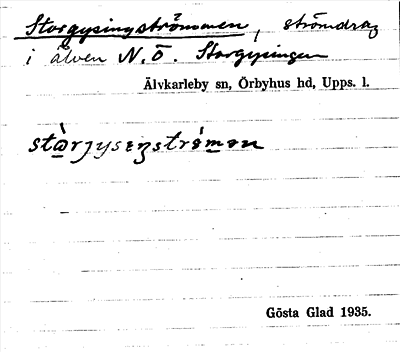 Storgysingströmmen, strömdrag
i älven N.Ö. Storgysingen
Älvkarleby sn, Örbyhus hd, Upps. l.
stὰ̱rɟysɛŋstrǿm̱ən
Gösta Glad 1935.